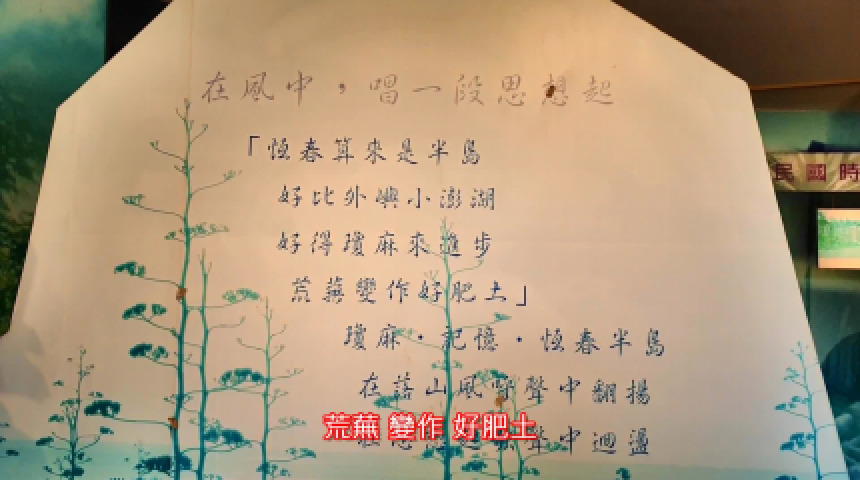 在風中，唱一段思想起
「恆春算來是半島
好比外嶼小澎湖
好得瓊麻來進步
荒蕪變作好肥土」
瓊麻·記憶·恆春半島
在落山風呼聲中翻揚
聲中迴盪
荒蕪 變作 好肥土
民國時